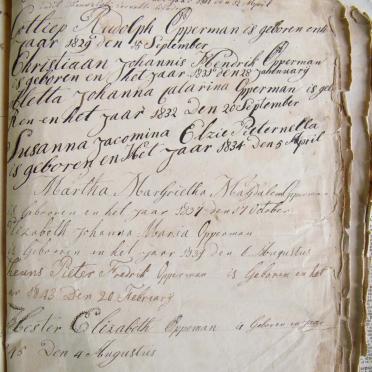 Rudolph Opperman is geboren en het
jaar 1829 den September
Christiaan Johannis Hendrik Opperman
is geboren en Het jaar den 28 januwary
Aletta Johanna Catarina Opperman is ge
en en het jaar 1832 Den 20 September
Susanna Jacomina Elzie Pieternella
is geboren en Het jaar 1834 den 5 April
Martha Margrietha Magdalena Opperman
is Geboren en het jaar 1837 den 17 October
Elizabeth Johanna Maria Opperman
is Geboren en het jaar 1839 den 6 Augustus
Pieter Fredrik Opperman is Geboren en het
1843 Den 20 February
Hester Elizabeth Oppeman is Geboren en jaar
45 Den 4 Augustus